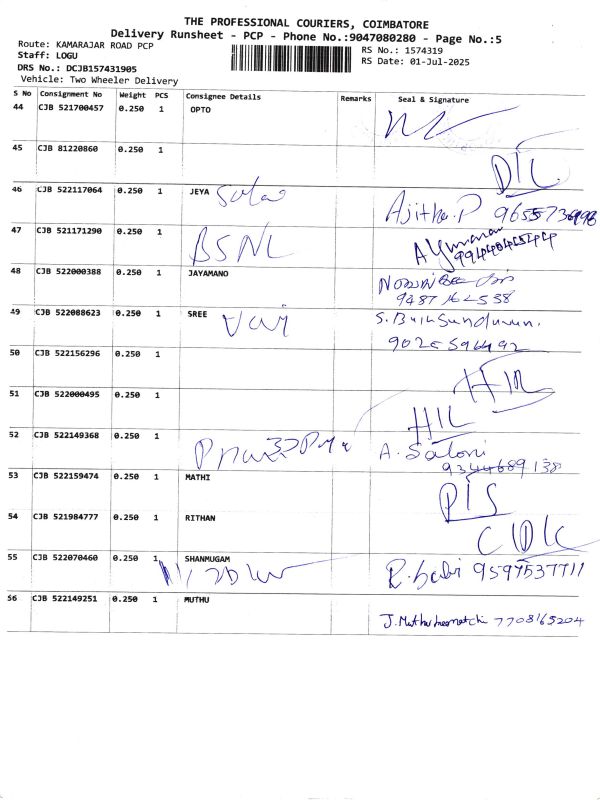 THE PROFESSIONAL COURIERS, COIMBATORE
Delivery Runsheet - PCP - Phone No.:9047080280 - Page No.:5
Route: KAMARAJAR ROAD PCP
RS No.: 1574319
Staff: LOGU
RS Date: 01-Jul-2025
DRS No.: DCJB157431905
Vehicle: Two Wheeler Delivery
S No Consignment No Weight PCS Consignee Details Remarks Seal & Signature
44 CJB 521700457 0.250 1 OPTO
45 CJB 81220860 0.250 1
D/L
46 CJB 522117064 0.250 1 JEYA
Ajitha.P
47 CJB 521171290 0.250 1 BSNL
48 CJB 522000388 0.250 1 JAYAMANO
9487162538
49 CJB 522088623 0.250 1 SREE
50 CJB 522156296 0.250 1
51 CJB 522000495 0.250 1
52 CJB 522149368 0.250 1 A. Saloni
9344689138
53 CJB 522159474 0.250 1 MATHI
54 CJB 521984777 0.250 1 RITHAN
55 CJB 522070460 0.250 1 SHANMUGAM
9597537711
56 CJB 522149251 0.250 1 MUTHU
7708165204